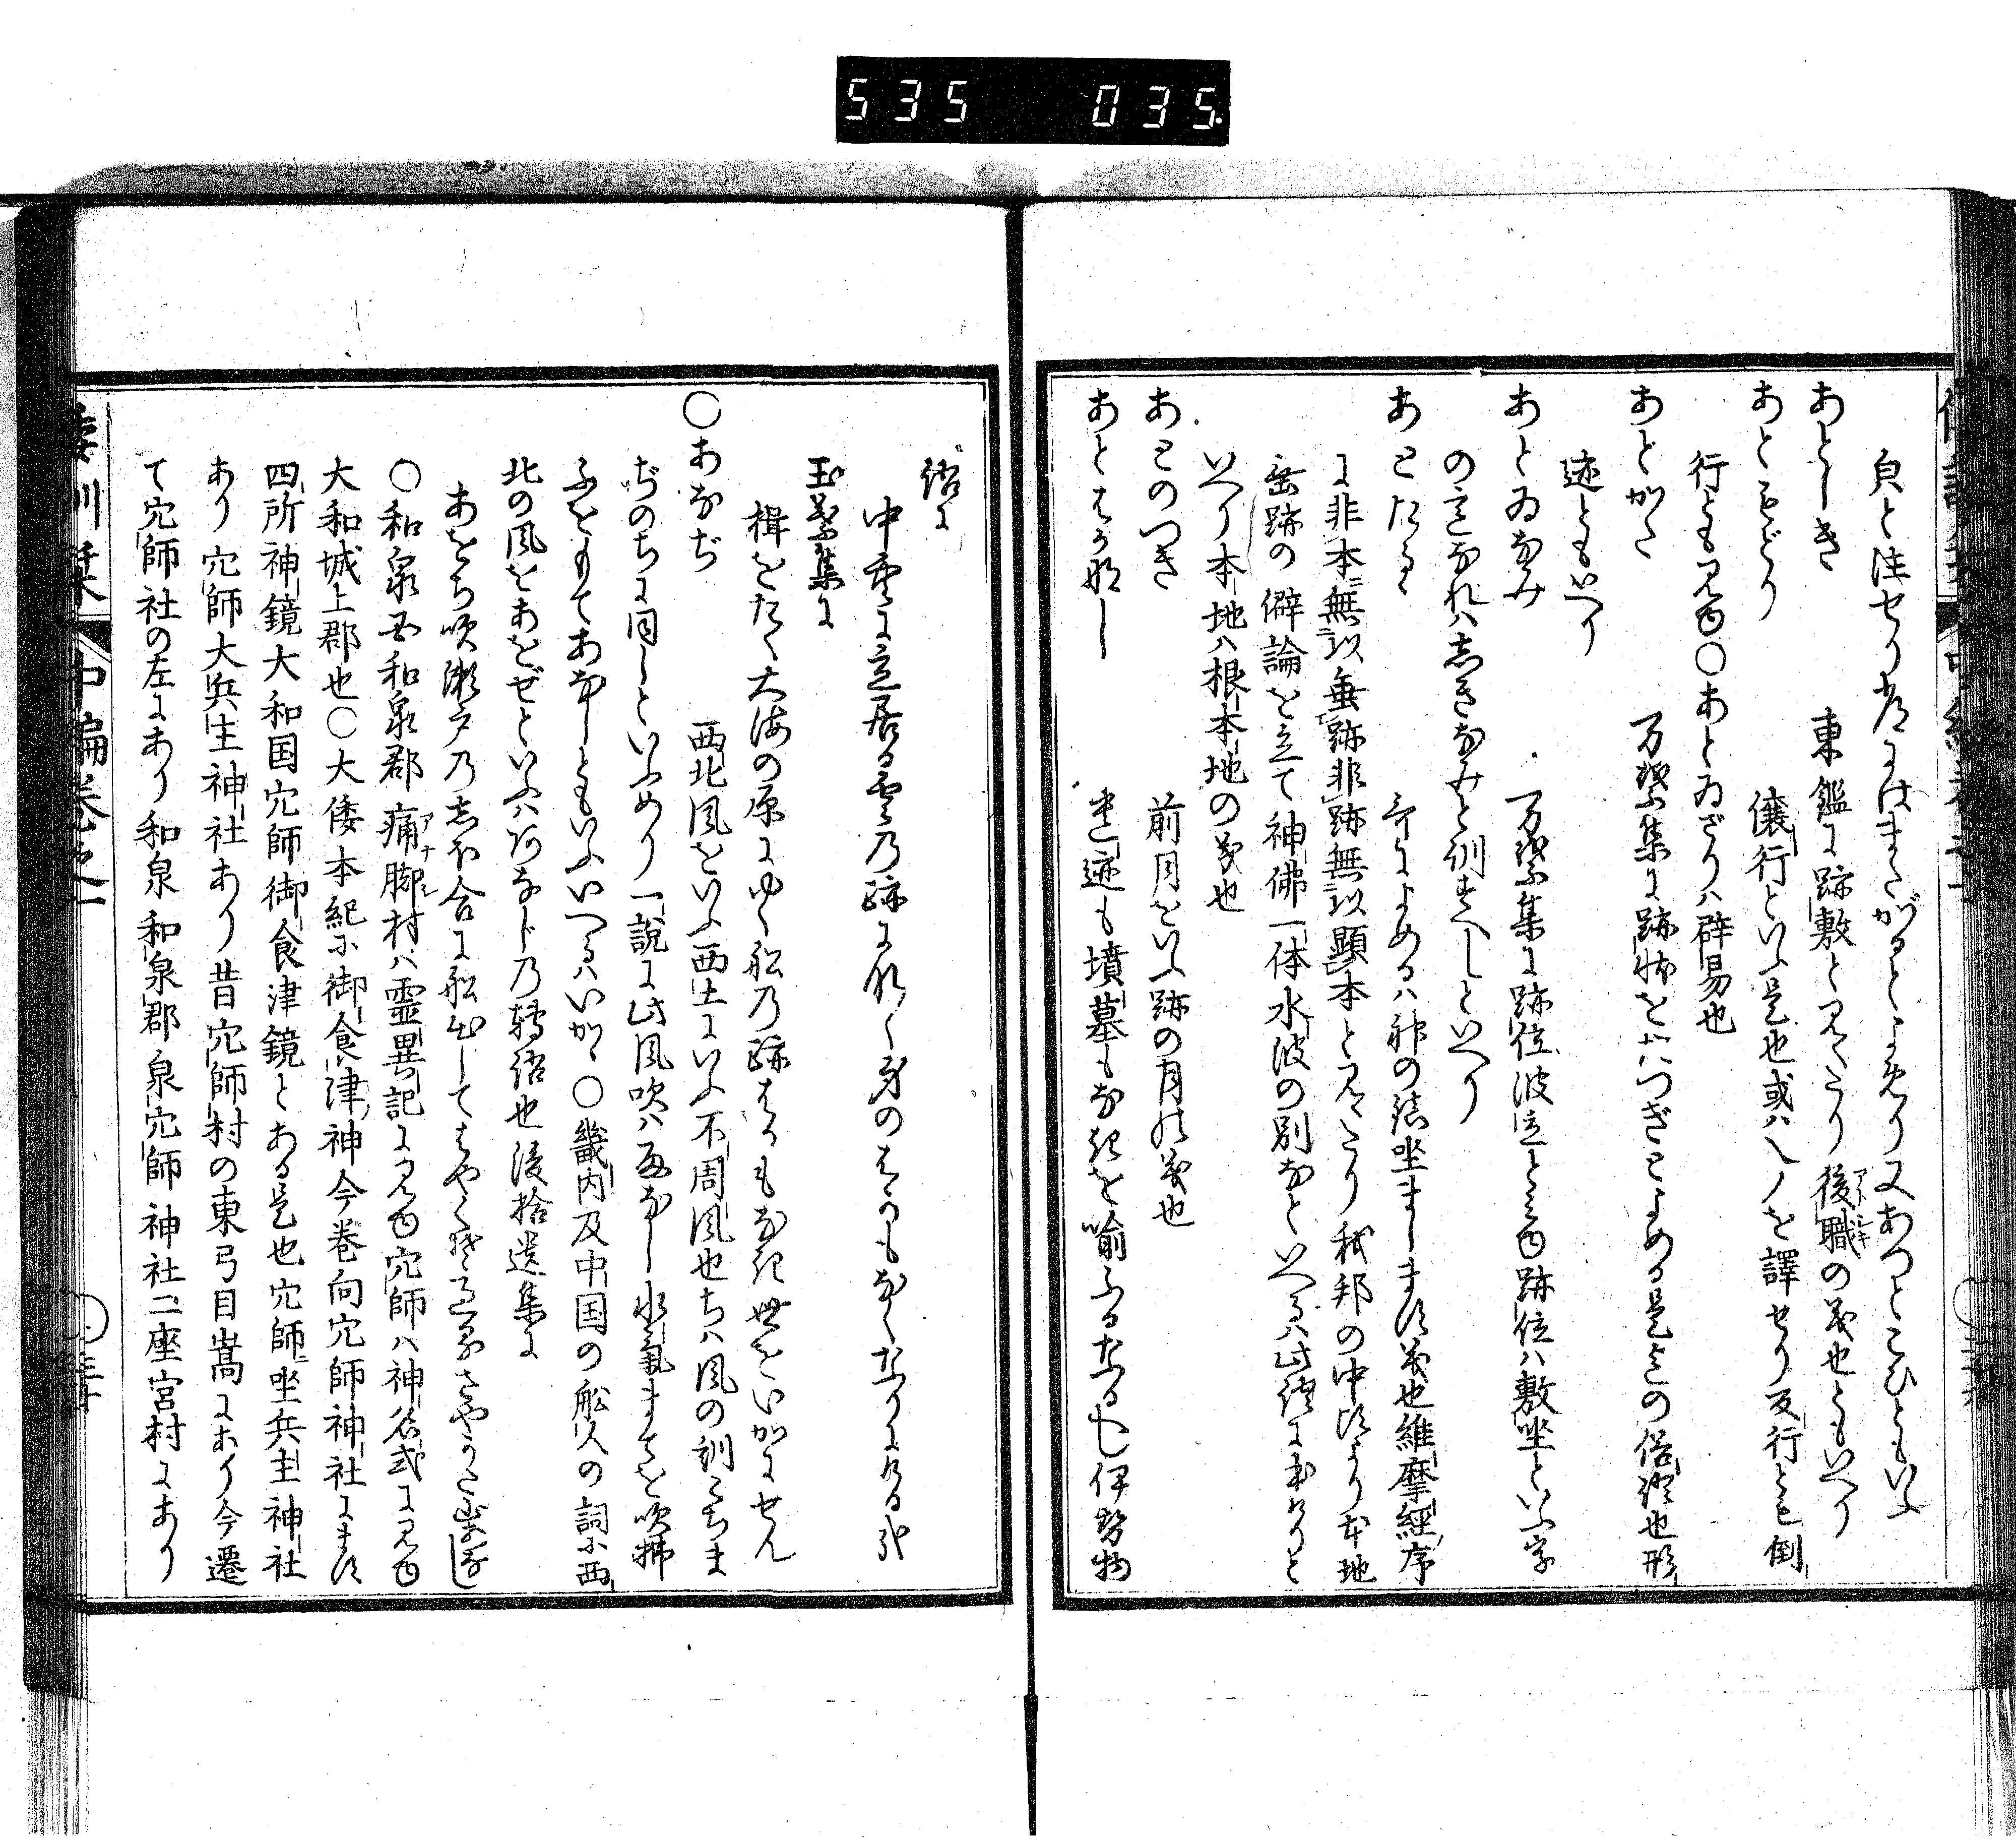 535 035.
負と注せり考にはまたがるとよめり又あつとこひともいふ
あとしき 東鑑に跡敷と見えたり後職の義也ともいへり
アトシキ
あともどり 儀行といふ是也或ハ乀ノを譯せり反行とも倒
行とも見ゆ〇あとゐざりハ辟易也
あとかた 万葉集に跡状をたつぎとよめる是もとの俗語也形
迹ともいへり
あとゐなみ 万葉集に跡位波立と見ゆ跡位ハ敷坐といふ字
の意なれハしきなみと訓すへしといへり
あとたるゝ 歌によめるハ神の鎮坐まします義也維摩經序
に非本無以垂跡非跡無以顯本と見えたり我邦の中比より本地
垂跡の僻論を立て神佛一体水波の別なとといへるハ此經に本けりと
いへり本地ハ根本地の義也
あとのつき 前月をいふ跡の月の義也
あとはかなし 迹も墳墓もなきを喩ふるなるへし伊勢物
語に
中空に立居る雲乃跡もなく身のはかなくもなりにける哉
玉葉集に
楫をたえ大海の原にゆく舩乃跡はかもなき世をいかにせん
〇あなぢ 西北風をいふ西土にいふ不周風也ちハ風の訓こちま
ぢのちに同しといふめり一説に此風吹ハ雨なし水氣まてを吹拂
ふをもてあなしともいふいへるハいかゝ〇畿内及中国の舩人の詞に西
北の風をあをぜといふハあなし乃轉語也後拾遺集に
あなし吹瀬戸乃しほ合に舩出してはやくそ過るさやかた山を
〇和泉国和泉郡痛脚村ハ靈異記に見ゆ穴師ハ神名式に見ゆ
アナシ
大和城上郡也〇大倭本紀に御食津神今巻向穴師神社にます
四所神鏡大和国穴師御食津鏡とある是也穴師坐兵主神社
あり穴師大兵主神社あり昔穴師村の東弓月嵩にあり今遷
て穴師社の左にあり和泉和泉郡泉穴師神社二座宮村にあり
倭訓栞 中編巻之一